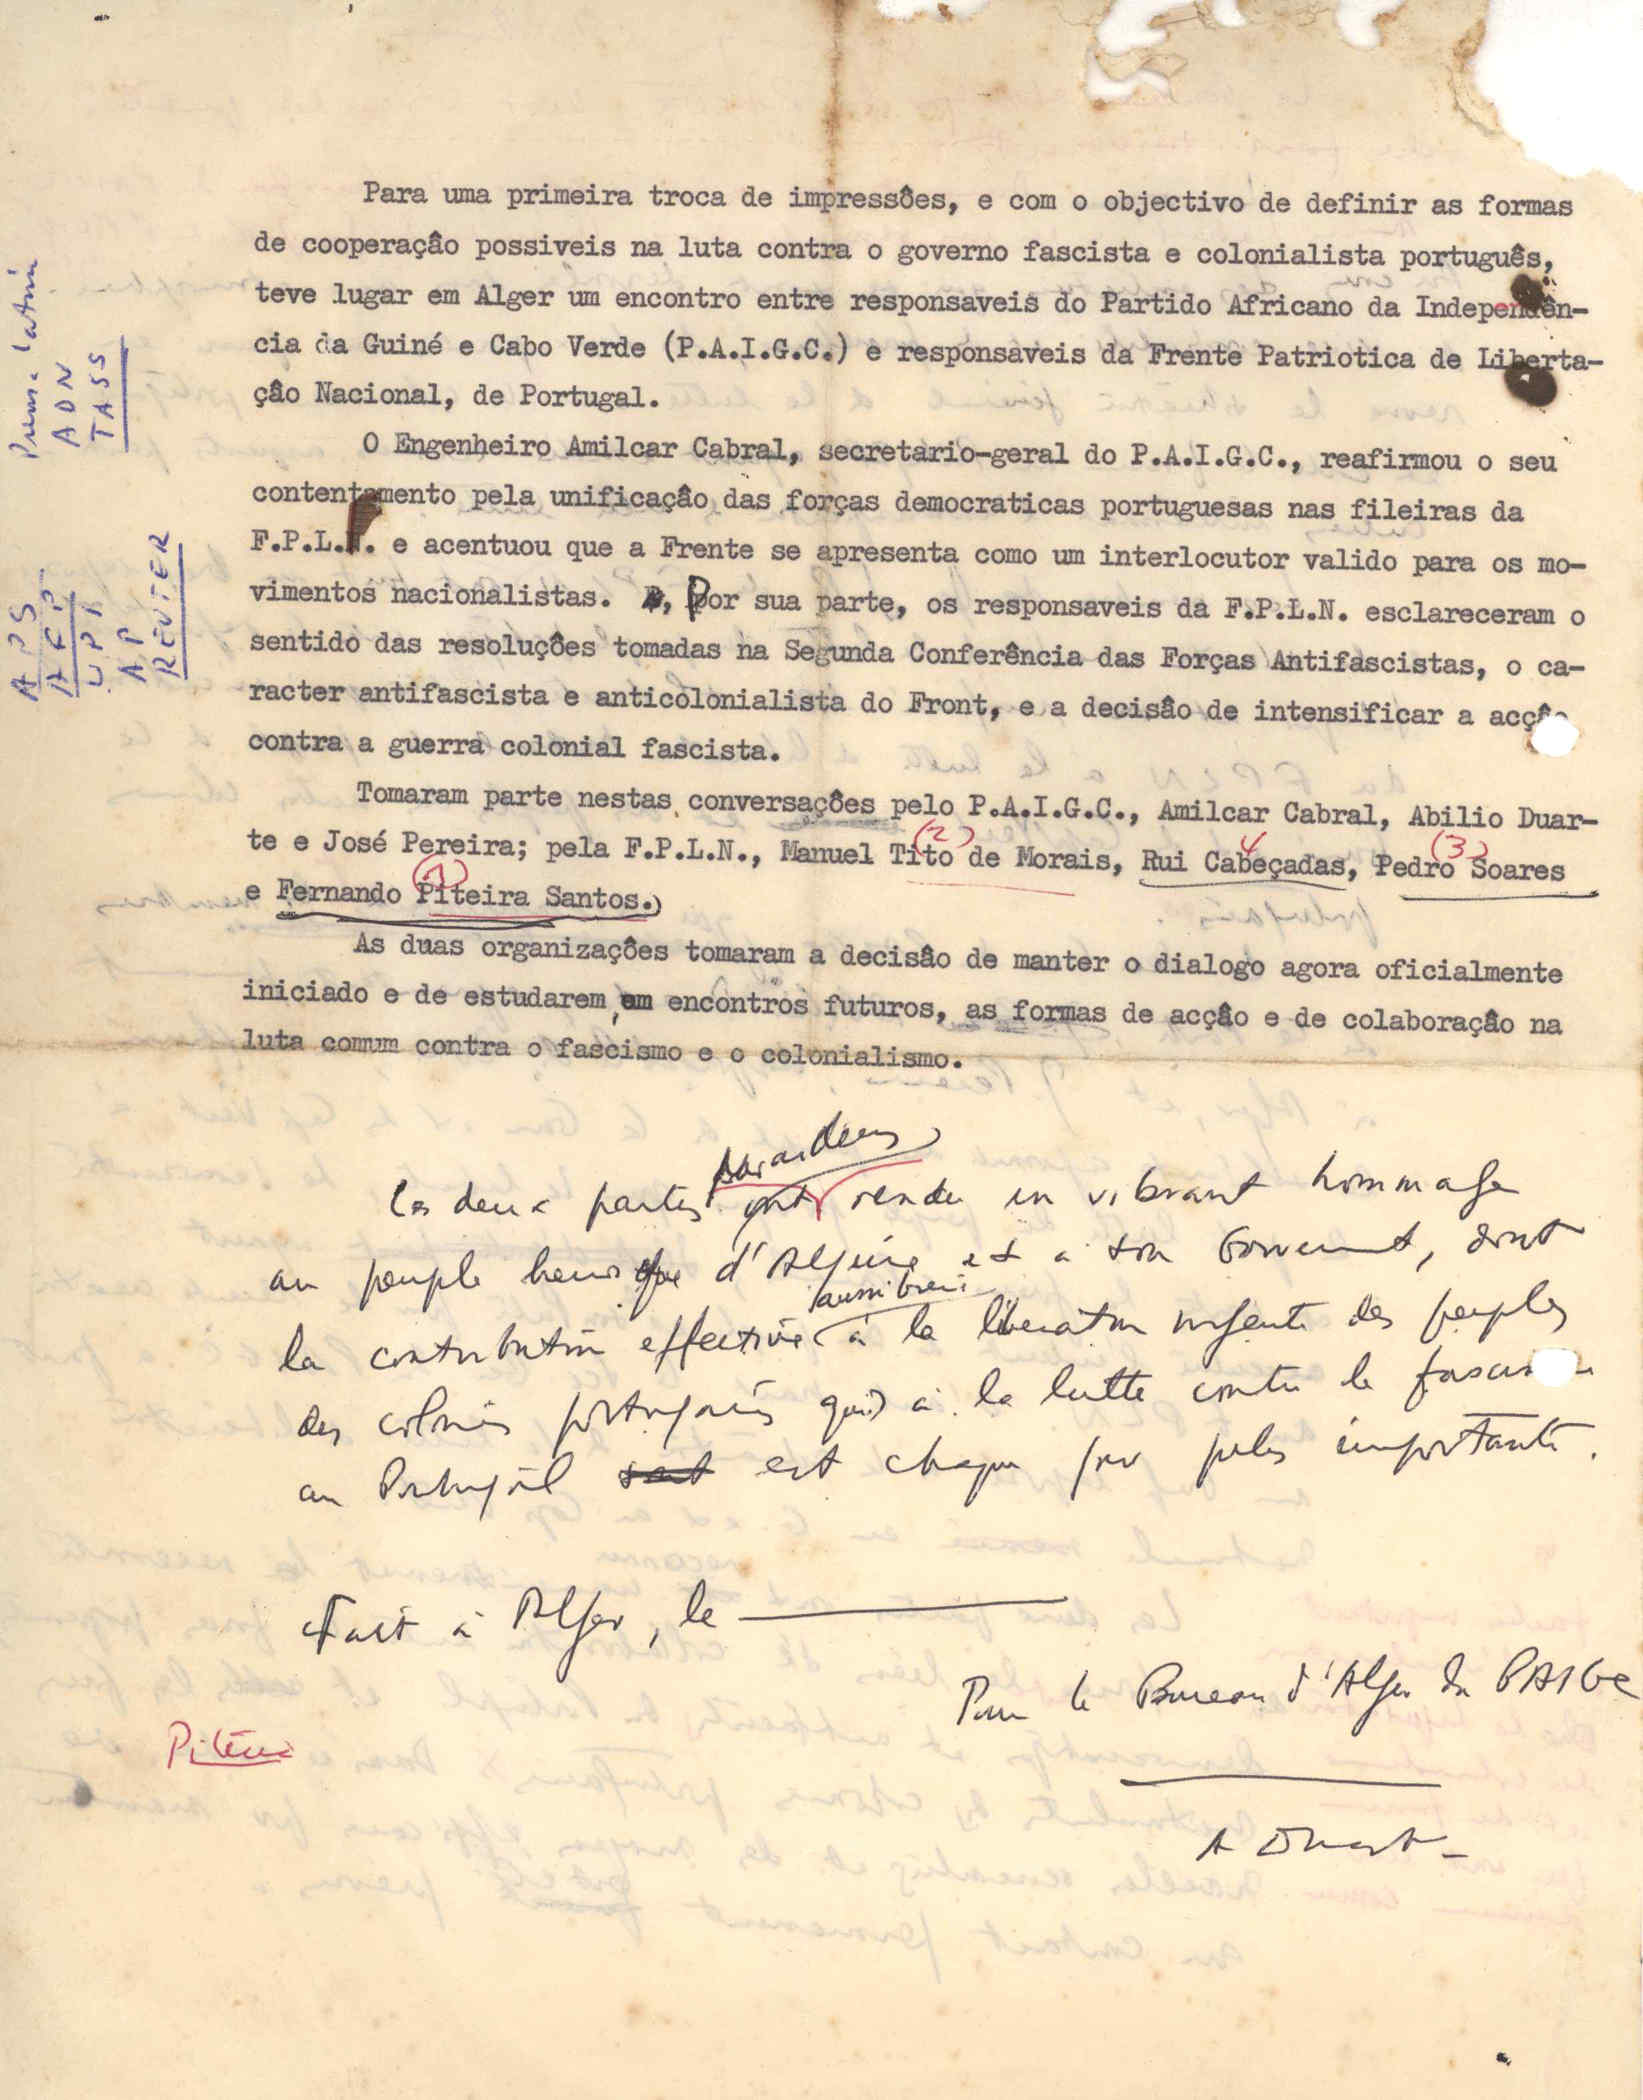 Para uma primeira troca de impressões, e com o objectivo de definir as formas
de cooperação possiveis na luta contra o governo fascista e colonialista português,
teve lugar em Alger um encontro entre responsaveis do Partido Africano da Independên-
cia da Guiné e Cabo Verde (P.A.I.G.C.) e responsaveis da Frente Patriotica de Liberta-
ção Nacional, de Portugal.
O Engenheiro Amilcar Cabral, secretario-geral do P.A.I.G.C., reafirmou o seu
contentamento pela unificação das forças democraticas portuguesas nas fileiras da
F.P.L.N. e acentuou que a Frente se apresenta como um interlocutor valido para os mo-
vimentos nacionalistas. Por sua parte, os responsaveis da F.P.L.N. esclareceram o
sentido das resoluções tomadas na Segunda Conferência das Forças Antifascistas, o ca-
racter antifascista e anticolonialista do Front, e a decisão de intensificar a acção
contra a guerra colonial fascista.
Tomaram parte nestas conversações pelo P.A.I.G.C., Amilcar Cabral, Abilio Duar-
(2) 4 (3)
te e José Pereira; pela F.P.L.N., Manuel Tito de Morais, Rui Cabeçadas, Pedro Soares
(1)
e Fernando Piteira Santos.
As duas organizações tomaram a decisão de manter o dialogo agora oficialmente
iniciado e de estudarem, em encontros futuros, as formas de acção e de colaboração na
luta comum contra o fascismo e o colonialismo.
Les deux parties ont rendu un vibrant hommage
au peuple heroique d'Algérie et à son Gouvernement, dont
aussi bien
la contribution effective à la libération urgente des peuples
des colonies portugaises que à la lutte contre le fascisme
au Portugal sont est chaque jour plus importante.
Fait à Alger, le
Pour le Bureau d'Alger du PAIGC
Piteira
A Duart
Prensa Latina
ADN
TASS
APS
AFP
UPI
AP
REUTER